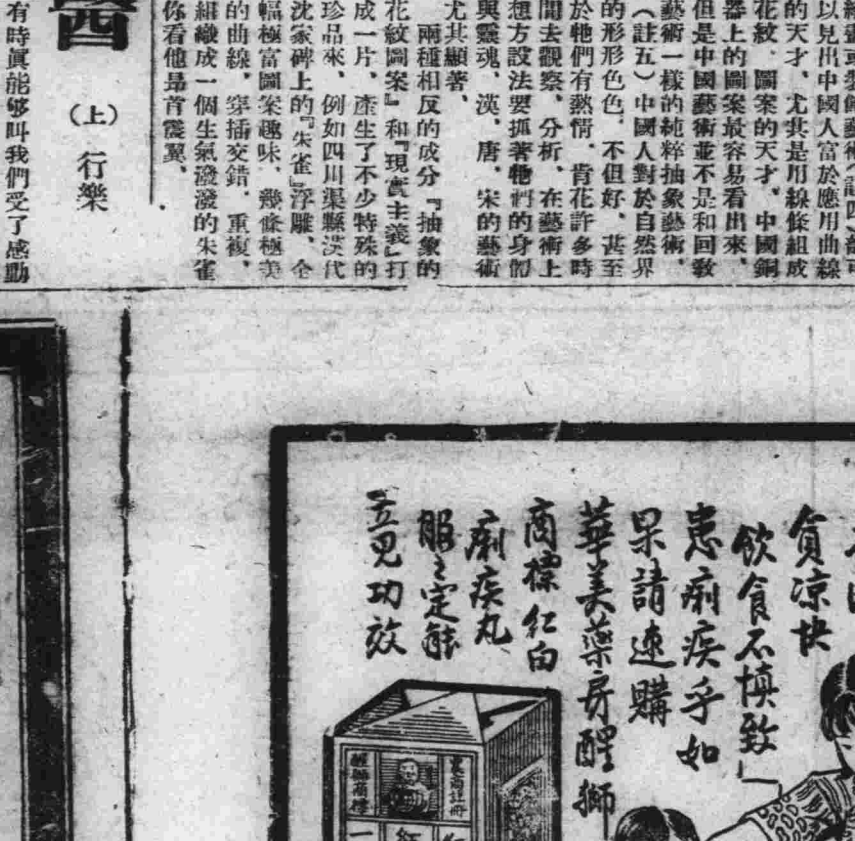 以見出中國人富於應用曲線
的天才、尤其是用線條組成
花紋、圖案的天才、中國銅
器上的圖案最容易看出來、
但是中國藝術並不是和回教
藝術一樣的純粹抽象藝術、
（註五）中國人對於自然界
的形形色色、不但好、甚至
於牠們有熱情、肯花許多時
間去觀察、分析、在藝術上
想方設法要抓著牠們的身體
與靈魂、漢、唐、宋的藝術
尤其顯著、
兩種相反的成分『抽象的
花紋圖案』和『現實主義』打
成一片、產生了不少特殊的
珍品來、例如四川渠縣漢代
沈家碑上的『朱雀』浮雕、全
幅極富圖案趣味、幾條極美
的曲線、穿插交錯、重複、
組織成一個生氣潑潑的朱雀
你看他昂首震翼、
（上）行樂
有時眞能够叫我們受了感動
貪涼快
飲食不慎致
患痢疾乎如
果請速購
華美藥房醒獅
商標紅白
痢疾丸
服之定能
立見功效